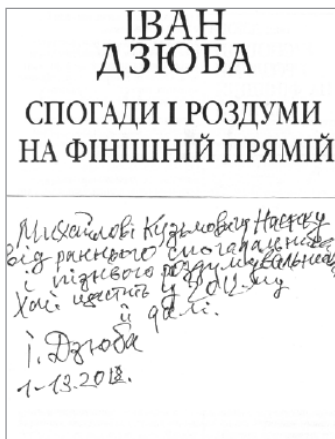 ІВАН
ДЗЮБА
СПОГАДИ І РОЗДУМИ
НА ФІНІШНІЙ ПРЯМІЙ
Михайлові Кузьмовичу Наєнку
від раннього спогадальника
і пізнього роздумувальника
Хай щастить у 2012-му
й далі.
І. Дзюба